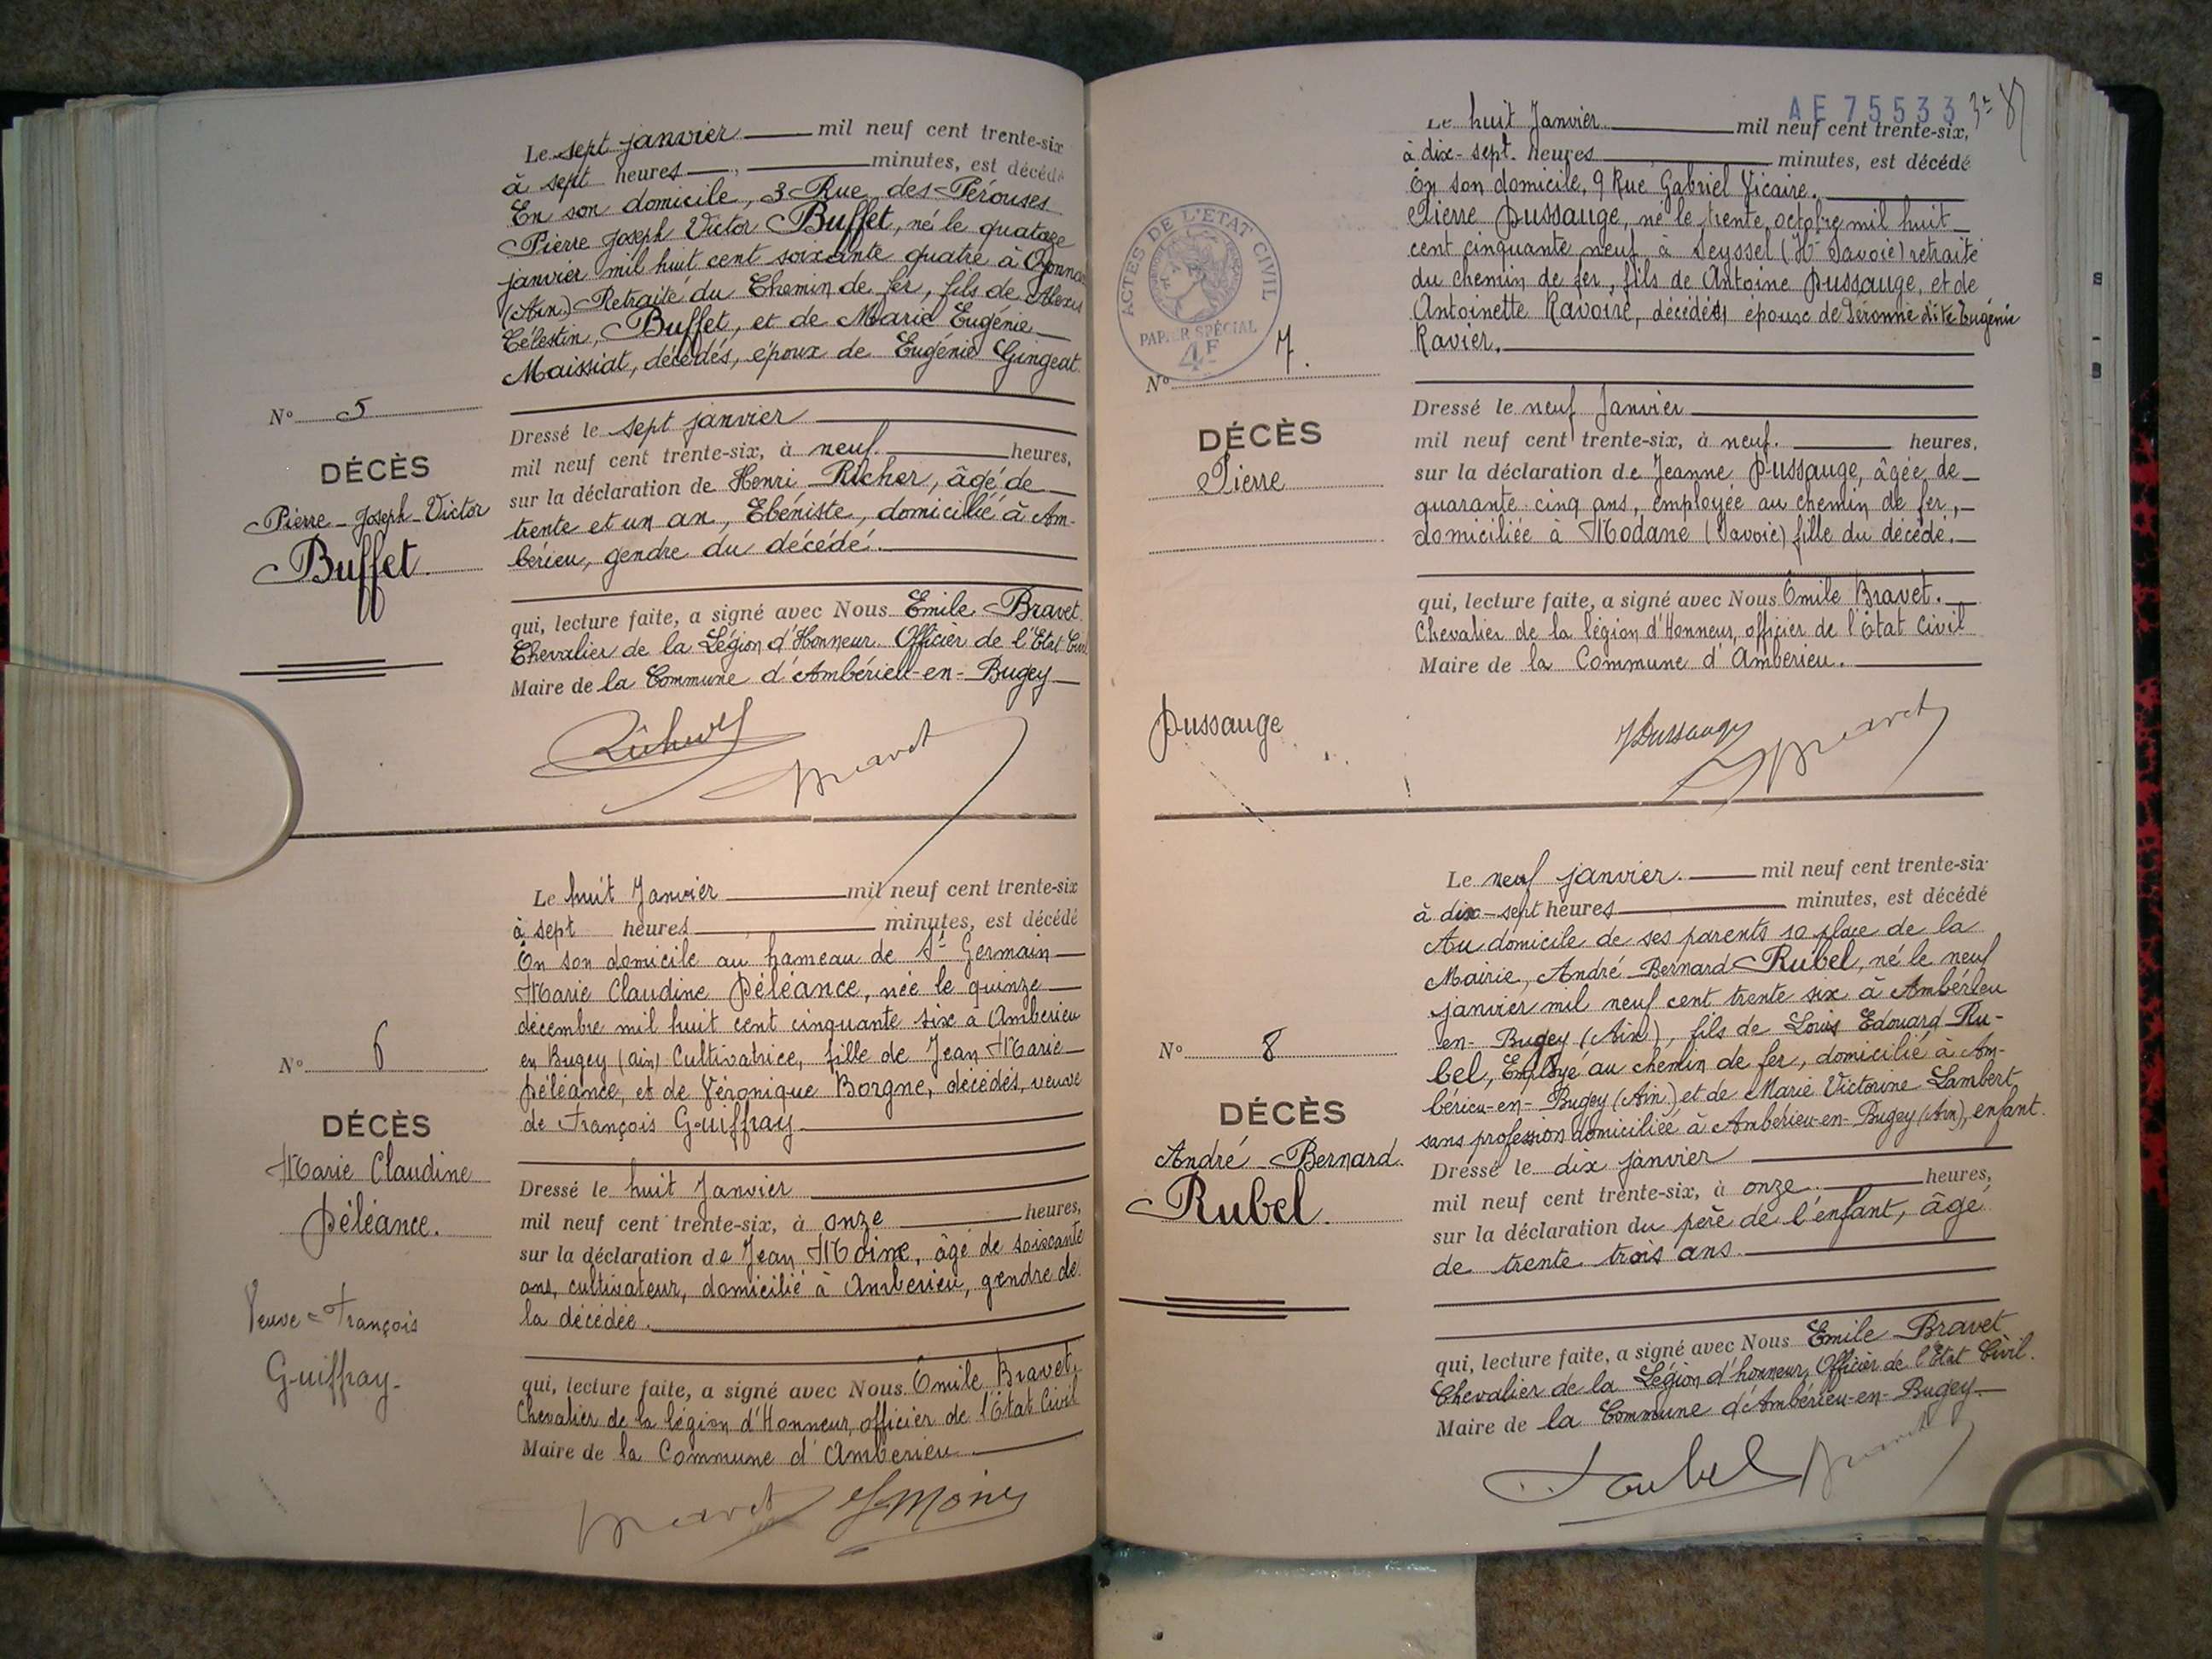 Le sept janvier mil neuf cent trente-six
à sept heures minutes, est décédé
En son domicile, 3 Rue des Pérouses
Pierre Joseph Victor Buffet, né le quatoze
janvier mil huit cent soixante quatre à Oyonna
(Ain) Retraité du Chemin de fer, fils de Alexis
Célestin, Buffet, et de Marie Eugénie
Maissiat, décédés, époux de Eugénie Gingeat.
N° 5
DÉCÈS
Pierre-Joseph-Victor
Buffet.
Dressé le sept janvier
mil neuf cent trente-six, à neuf. heures,
sur la déclaration de Henri Richer, âgé de
trente et un an, Ebéniste, domicilié à Am-
bérieu, gendre du décédé.
qui, lecture faite, a signé avec Nous Emile Bravet
Chevalier de la Légion d'Honneur. Officier de l'Etat Civil
Maire de la Commune d'Ambérieu-en-Bugey
Bravet
Le huit Janvier mil neuf cent trente-six
à sept heures minutes, est décédé
En son domicile au hameau de St Germain
Marie Claudine Péléance, née le quinze
décembre mil huit cent cinquante six à Ambérieu
en Bugey (ain) Cultivatrice, fille de Jean Marie
Péléance, et de Véronique Borgne, décédés, veuve
de François Guiffray
N° 6
DÉCÈS
Marie Claudine
Péléance.
Veuve François
Guiffray
Dressé le huit Janvier
mil neuf cent trente-six, à onze heures,
sur la déclaration de Jean Moine, âgé de soixante
ans, cultivateur, domicilié à Ambérieu, gendre de
la décédée.
qui, lecture faite, a signé avec Nous Emile Bravet,
Chevalier de la légion d'Honneur, officier de l'Etat Civil
Maire de la Commune d'Ambérieu
Bravet
AE 75533
Le huit Janvier mil neuf cent trente-six,
à dix-sept. heures minutes, est décédé
En son domicile, 9 Rue Gabriel Vicaire.
Pierre Dussauge, né le trente octobre mil huit
cent cinquante neuf à Seyssel (Hte Savoie) retraité
du chemin de fer, fils de Antoine Dussauge, et de
Antoinette Ravoire, décédés, épouse de Péronne dite Eugénie
Ravier.
ACTES DE L'ETAT CIVIL
PAPIER SPÉCIAL
4F
N° 7.
DÉCÈS
Pierre
Dussauge
Dressé le neuf Janvier
mil neuf cent trente-six, à neuf. heures,
sur la déclaration de Jeanne Dussauge, âgée de
quarante cinq ans, employée au chemin de fer,
domiciliée à Modane (Savoie) fille du décédé.
qui, lecture faite, a signé avec Nous Emile Bravet.
Chevalier de la légion d'Honneur, officier de l'Etat Civil
Maire de la Commune d'Ambérieu.
JDussauge Bravet
Le neuf janvier. mil neuf cent trente-six
à dix-sept heures minutes, est décédé
Au domicile de ses parents 10 place de la
Mairie, André Bernard Rubel, né le neuf
janvier mil neuf cent trente six à Ambérieu
en-Bugey (Ain), fils de Louis Edouard Ru-
bel, Employé au chemin de fer, domicilié à Am-
bérieu-en-Bugey (Ain) et de Marie Victorine Lambert
sans profession domiciliée à Ambérieu-en-Bugey (Ain), enfant.
N° 8
DÉCÈS
André-Bernard.
Rubel.
Dressé le dix janvier
mil neuf cent trente-six, à onze heures,
sur la déclaration du père de l'enfant, âgé
de trente trois ans.
qui, lecture faite, a signé avec Nous Emile Bravet
Chevalier de la Légion d'honneur, Officier de l'Etat Civil.
Maire de la Commune d'Ambérieu-en-Bugey.
Rubel Bravet